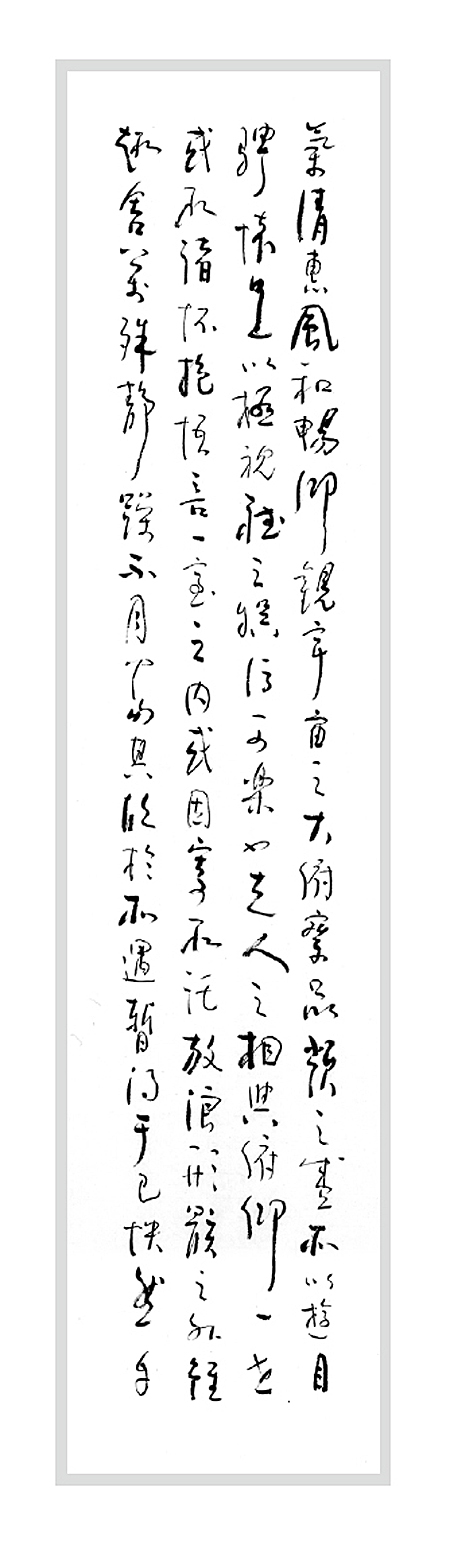 氣清惠風和暢仰觀宇宙之大俯察品類之盛所以遊目
騁懷足以極視聽之娛信可樂也夫人之相與俯仰一世
或取諸怀抱悟言一室之内或因寄所託放浪形骸之外雖
趣舍萬殊靜躁不同當其欣於所遇暫得于己快然自